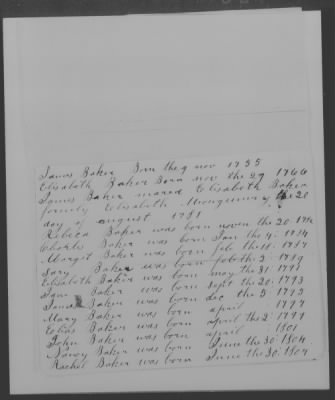 James Baker Born the 9 nov 1755
Elisabeth Baker Born nov the 29 1766
James Baker mared Elisabeth Baker
formely Elisabeth Mongumery the 20
day of august 1781
Rebeca Baker was born novem the 20 1782
Charls Baker was born Jan the 4: 1784
Margret Baker was born feb the 11: 1787
Sary Baker was born feb the 2: 1789
Elisabeth Baker was born may the 31 1791
Sam Baker was born sept the 20: 1793
James Baker was born dec the 5: 1795
Mary Baker was born april 1797
Elias Baker was born april the 2: 1799
John Baker was born april 1801
Nancy Baker was born June the 30: 1804
Rachel Baker was born June the 30: 1807